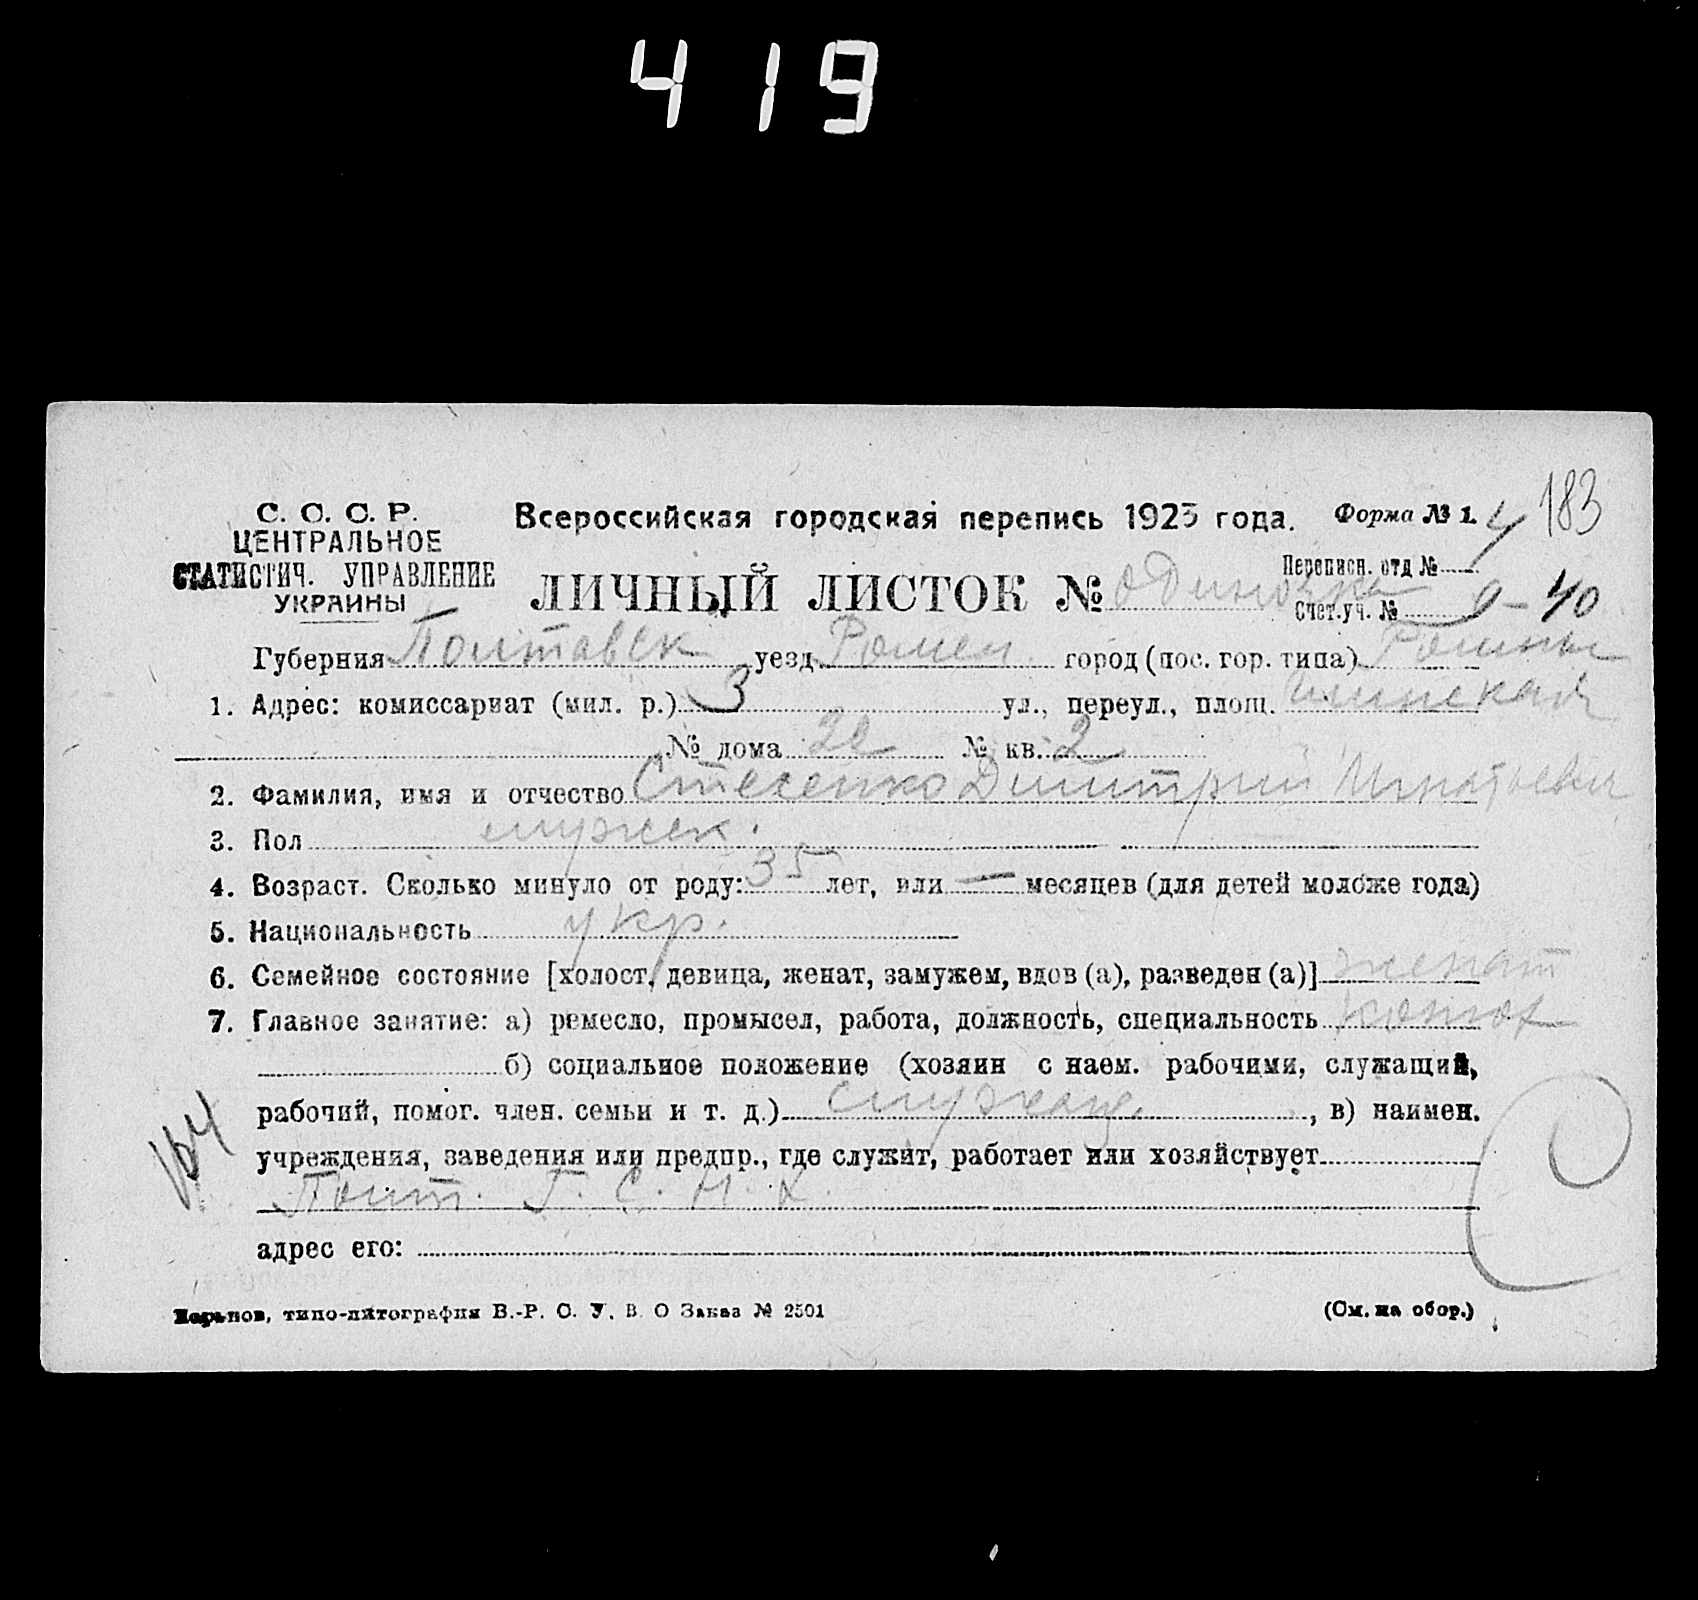 419
183
С. С. С. Р.
ЦЕНТРАЛЬНОЕ
СТАТИСТИЧ. УПРАВЛЕНИЕ
УКРАИНЫ
Всероссийская городская перепись 1923 года. Форма № 1.
Переписн. отд № 4
ЛИЧНЫЙ ЛИСТОК № одиночка
Счет.уч. № 9-40
Губерния Полтавск уезд Ромен город (пос. гор. типа) Ромны
1. Адрес: комиссариат (мил. р.) 3 ул., переул., площ.
№ дома № кв. 2
2. Фамилия, имя и отчество Стеценко Димитрий Игнатьевич
3. Пол мужск.
4. Возраст. Сколько минуло от роду: 35 лет, или — месяцев (для детей моложе года)
5. Национальность укр.
6. Семейное состояние [холост, девица, женат, замужем, вдов (а), разведен (а)] женат
7. Главное занятие: а) ремесло, промысел, работа, должность, специальность
б) социальное положение (хозяин с наем. рабочими, служащий,
рабочий, помог. член. семьи и т. д.) служащ. , в) наимен.
учреждения, заведения или предпр., где служит, работает или хозяйствует
Полт. Г. С. Н. Х.
адрес его:
Харьков, типо-литография В.-Р. С. У. В. О Заказ № 2501 (См. на обор.)